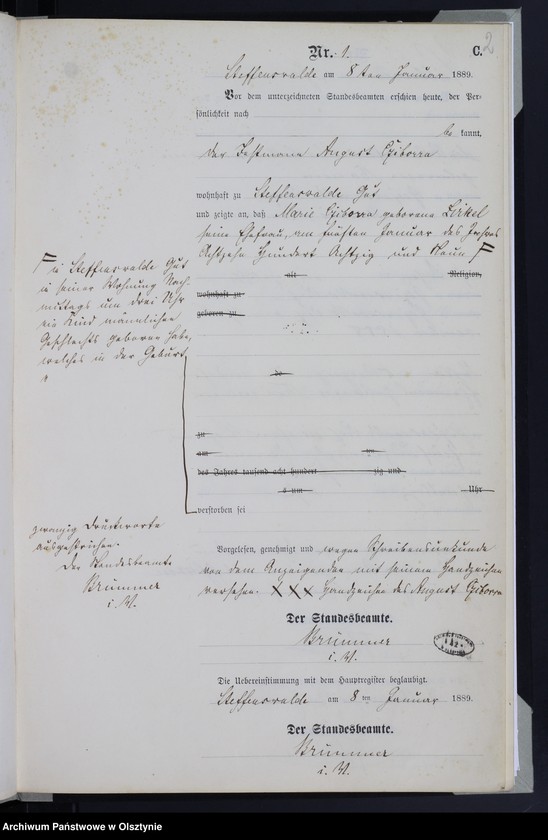 2
Nr. 1. C.
Steffenswalde am 8ten Januar 1889.
Vor dem unterzeichneten Standesbeamten erschien heute, der Per-
sönlichkeit nach
be kannt,
der Instmann August Cziborra
wohnhaft zu Steffenswalde Gut
und zeigte an, daß Marie Cziborra geborene Zirkel
seine Ehefrau, am fünften Januar des Jahres
Achtzehn Hundert Achtzig und Neun
alt Religion,
wohnhaft zu
geboren zu
zu Steffenswalde Gut
in seiner Wohnung Nach-
mittags um drei Uhr
ein Kind männlichen
Geschlechts geboren habe,
welches in der Geburt
de
zu
am
des Jahres tausend acht hundert zig und
s um Uhr
verstorben sei
zwanzig Druckworte
ausgestrichen.
Der Standesbeamte
Brümmer
i. V.
Vorgelesen, genehmigt und wegen Schreibensunkunde
von dem Anzeigenden mit seinem Handzeichen
versehen. XXX Handzeichen des August Cziborra
Der Standesbeamte.
Brümmer
i. V.
Die Uebereinstimmung mit dem Hauptregister beglaubigt.
Steffenswalde am 8ten Januar 1889.
Der Standesbeamte.
Brümmer
i. V.
Archiwum Państwowe w Olsztynie